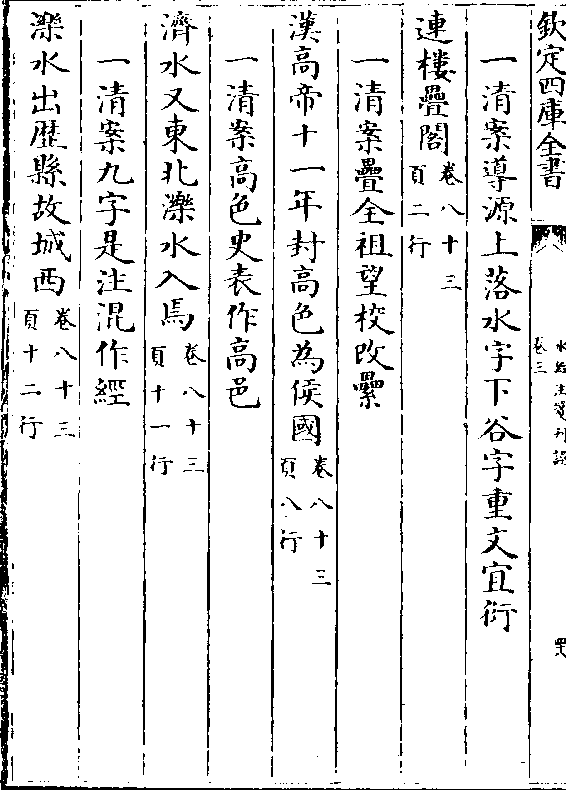 欽定四庫全書
水經注箋刊誤
卷三
一清案導源上落水字下谷字重文宜衍
連樓疊閣卷八十三頁二行
一清案疊全祖望校改纍
漢高帝十一年封高色為侯國卷八十三頁八行
一清案高色史表作高邑
濟水又東北濼水入焉卷八十三頁十一行
一清案九字是注混作經
濼水出歴縣故城西卷八十三頁十二行